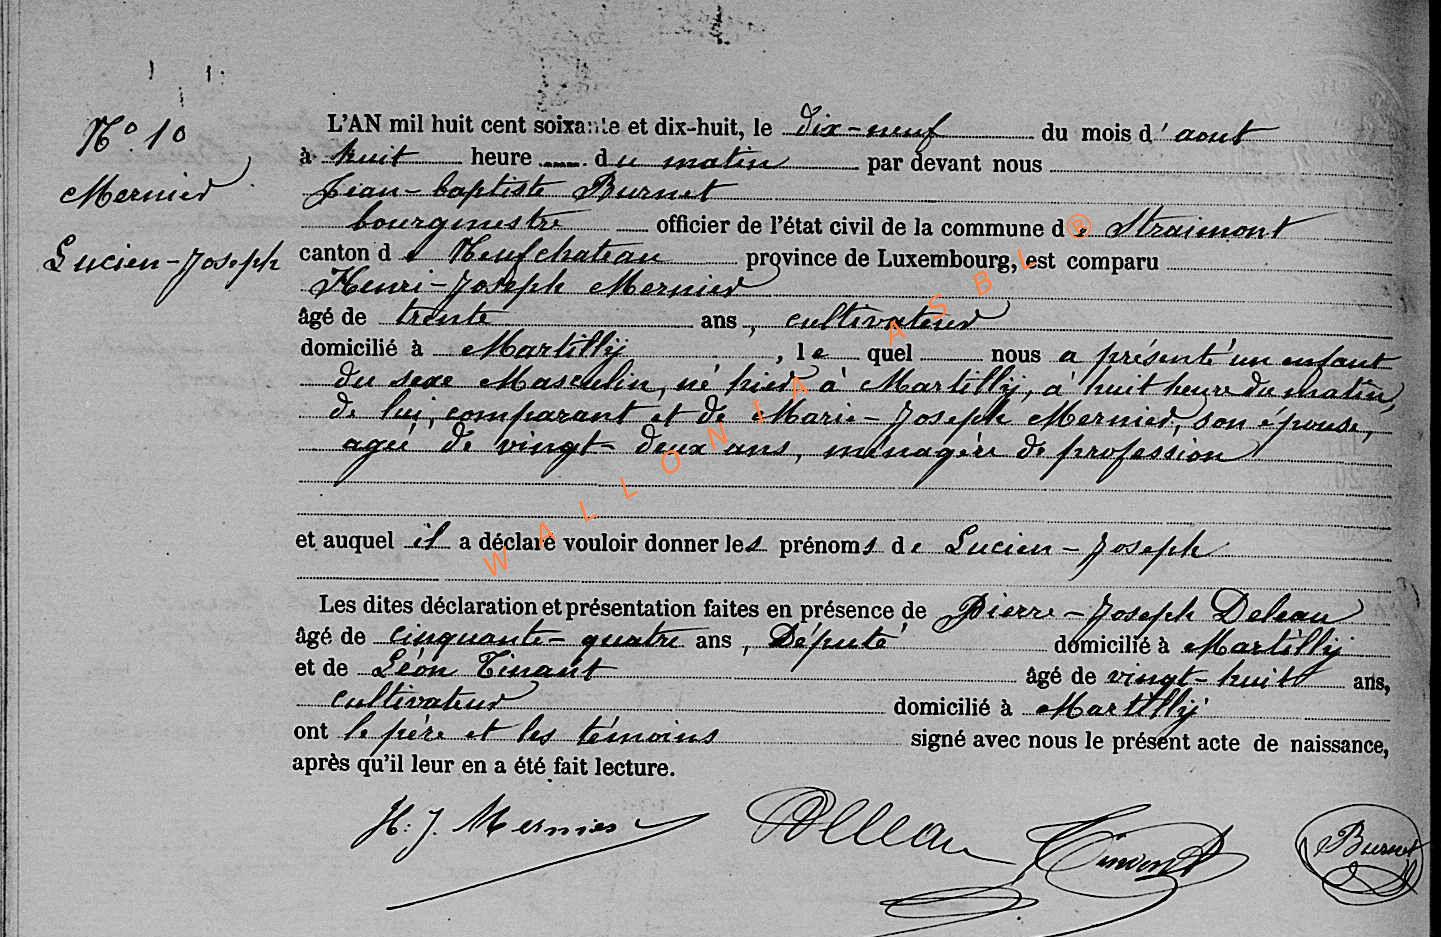 N° 10
Mernier
Lucien-Joseph
L'AN mil huit cent soixante et dix-huit, le dix-neuf du mois d'aout
à huit heure du matin par devant nous
Jean-baptiste Burnet
bourgmestre officier de l'état civil de la commune de Straimont
canton de Neufchateau province de Luxembourg, est comparu
Henri-Joseph Mernier
âgé de trente ans, cultivateur
domicilié à Martilly, lequel nous a présenté un enfant
du sexe Masculin, né hier à Martilly, à huit heure du matin,
de lui, comparant et de Marie-Joseph Mernier, son épouse,
agée de vingt-deux ans, ménagère de profession
et auquel il a déclaré vouloir donner les prénoms de Lucien-Joseph
Les dites déclaration et présentation faites en présence de Pierre-Joseph Deleau
âgé de cinquante-quatre ans, Député domicilié à Martilly
et de Léon Tinant âgé de vingt-huit ans,
cultivateur domicilié à Martilly
ont le père et les témoins signé avec nous le présent acte de naissance,
après qu'il leur en a été fait lecture.
H. J. Mernier Deleau Tinant Burnet
WALLONIA ASBL ®